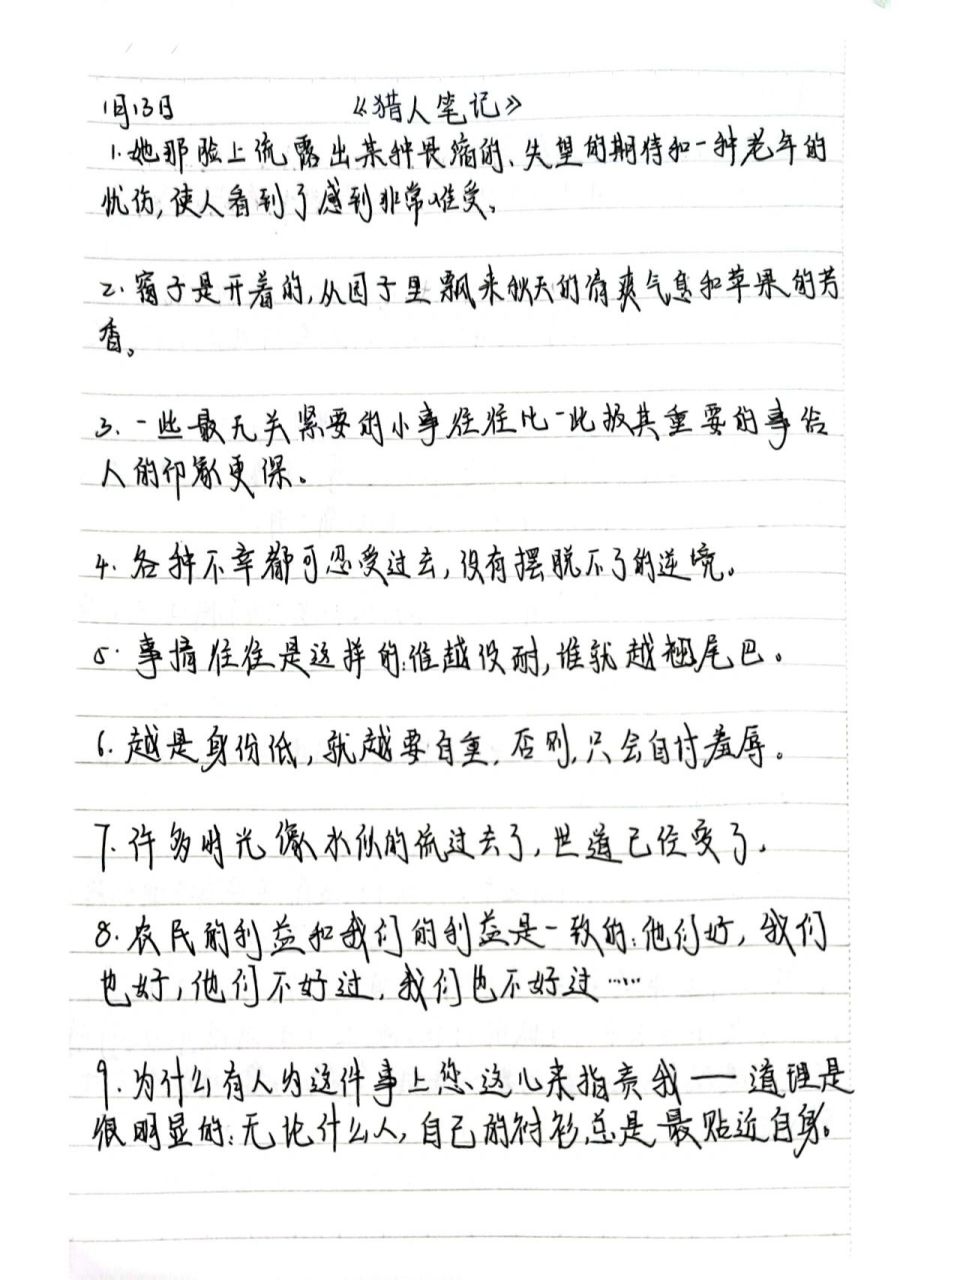 1月13日 《猎人笔记》
1.她那脸上流露出某种畏缩的、失望的期待和一种老年的
忧伤,使人看到了感到非常难受。
2.窗子是开着的,从园子里飘来秋天的清爽气息和苹果的芳
香。
3.一些最无关紧要的小事往往比一些极其重要的事给
人的印象更深。
4.各种不幸都可忍受过去,没有摆脱不了的逆境。
5.事情往往是这样的:谁越没耐,谁就越翘尾巴。
6.越是身份低,就越要自重,否则,只会自讨羞辱。
7.许多时光像水似的流过去了,世道已经变了.
8.农民的利益和我们的利益是一致的:他们好,我们
也好,他们不好过,我们也不好过……
9.为什么有人为这件事上您这儿来指责我——道理是
很明显的:无论什么人,自己的衬衫,总是最贴近自身。